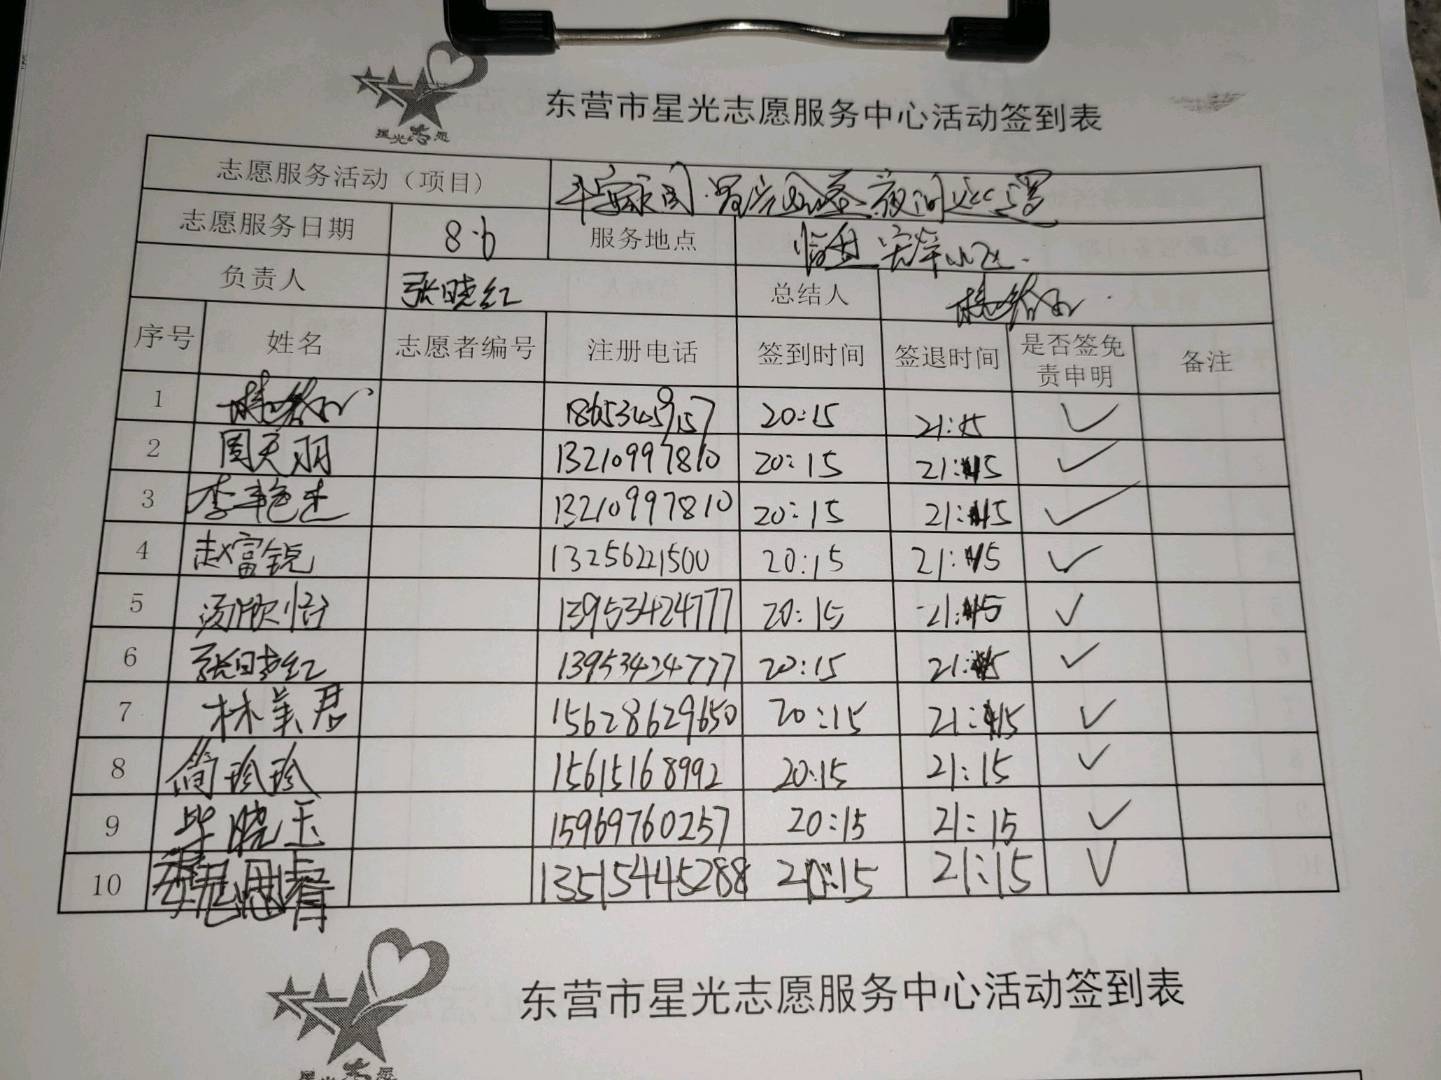 东营市星光志愿服务中心活动签到表
星光志愿
志愿服务活动（项目） 平安家园·胃泌夜间巡逻
志愿服务日期 8.6 服务地点 小区
负责人 张晓红 总结人
序号 姓名 志愿者编号 注册电话 签到时间 签退时间 是否签免责申明 备注
1 20:15 21:15 ✓
2 周天羽 13210997810 20:15 21:15 ✓
3 李艳 13210997810 20:15 21:15 ✓
4 赵富锐 13256221500 20:15 21:15 ✓
5 汤欣怡 13953424777 20:15 21:15 ✓
6 张晓红 13953424777 20:15 21:15 ✓
7 林美君 15628629650 20:15 21:15 ✓
8 简珍珍 15615168992 20:15 21:15 ✓
9 毕晓玉 15969760257 20:15 21:15 ✓
10 魏思睿 13515445288 20:15 21:15 ✓
东营市星光志愿服务中心活动签到表
星光志愿